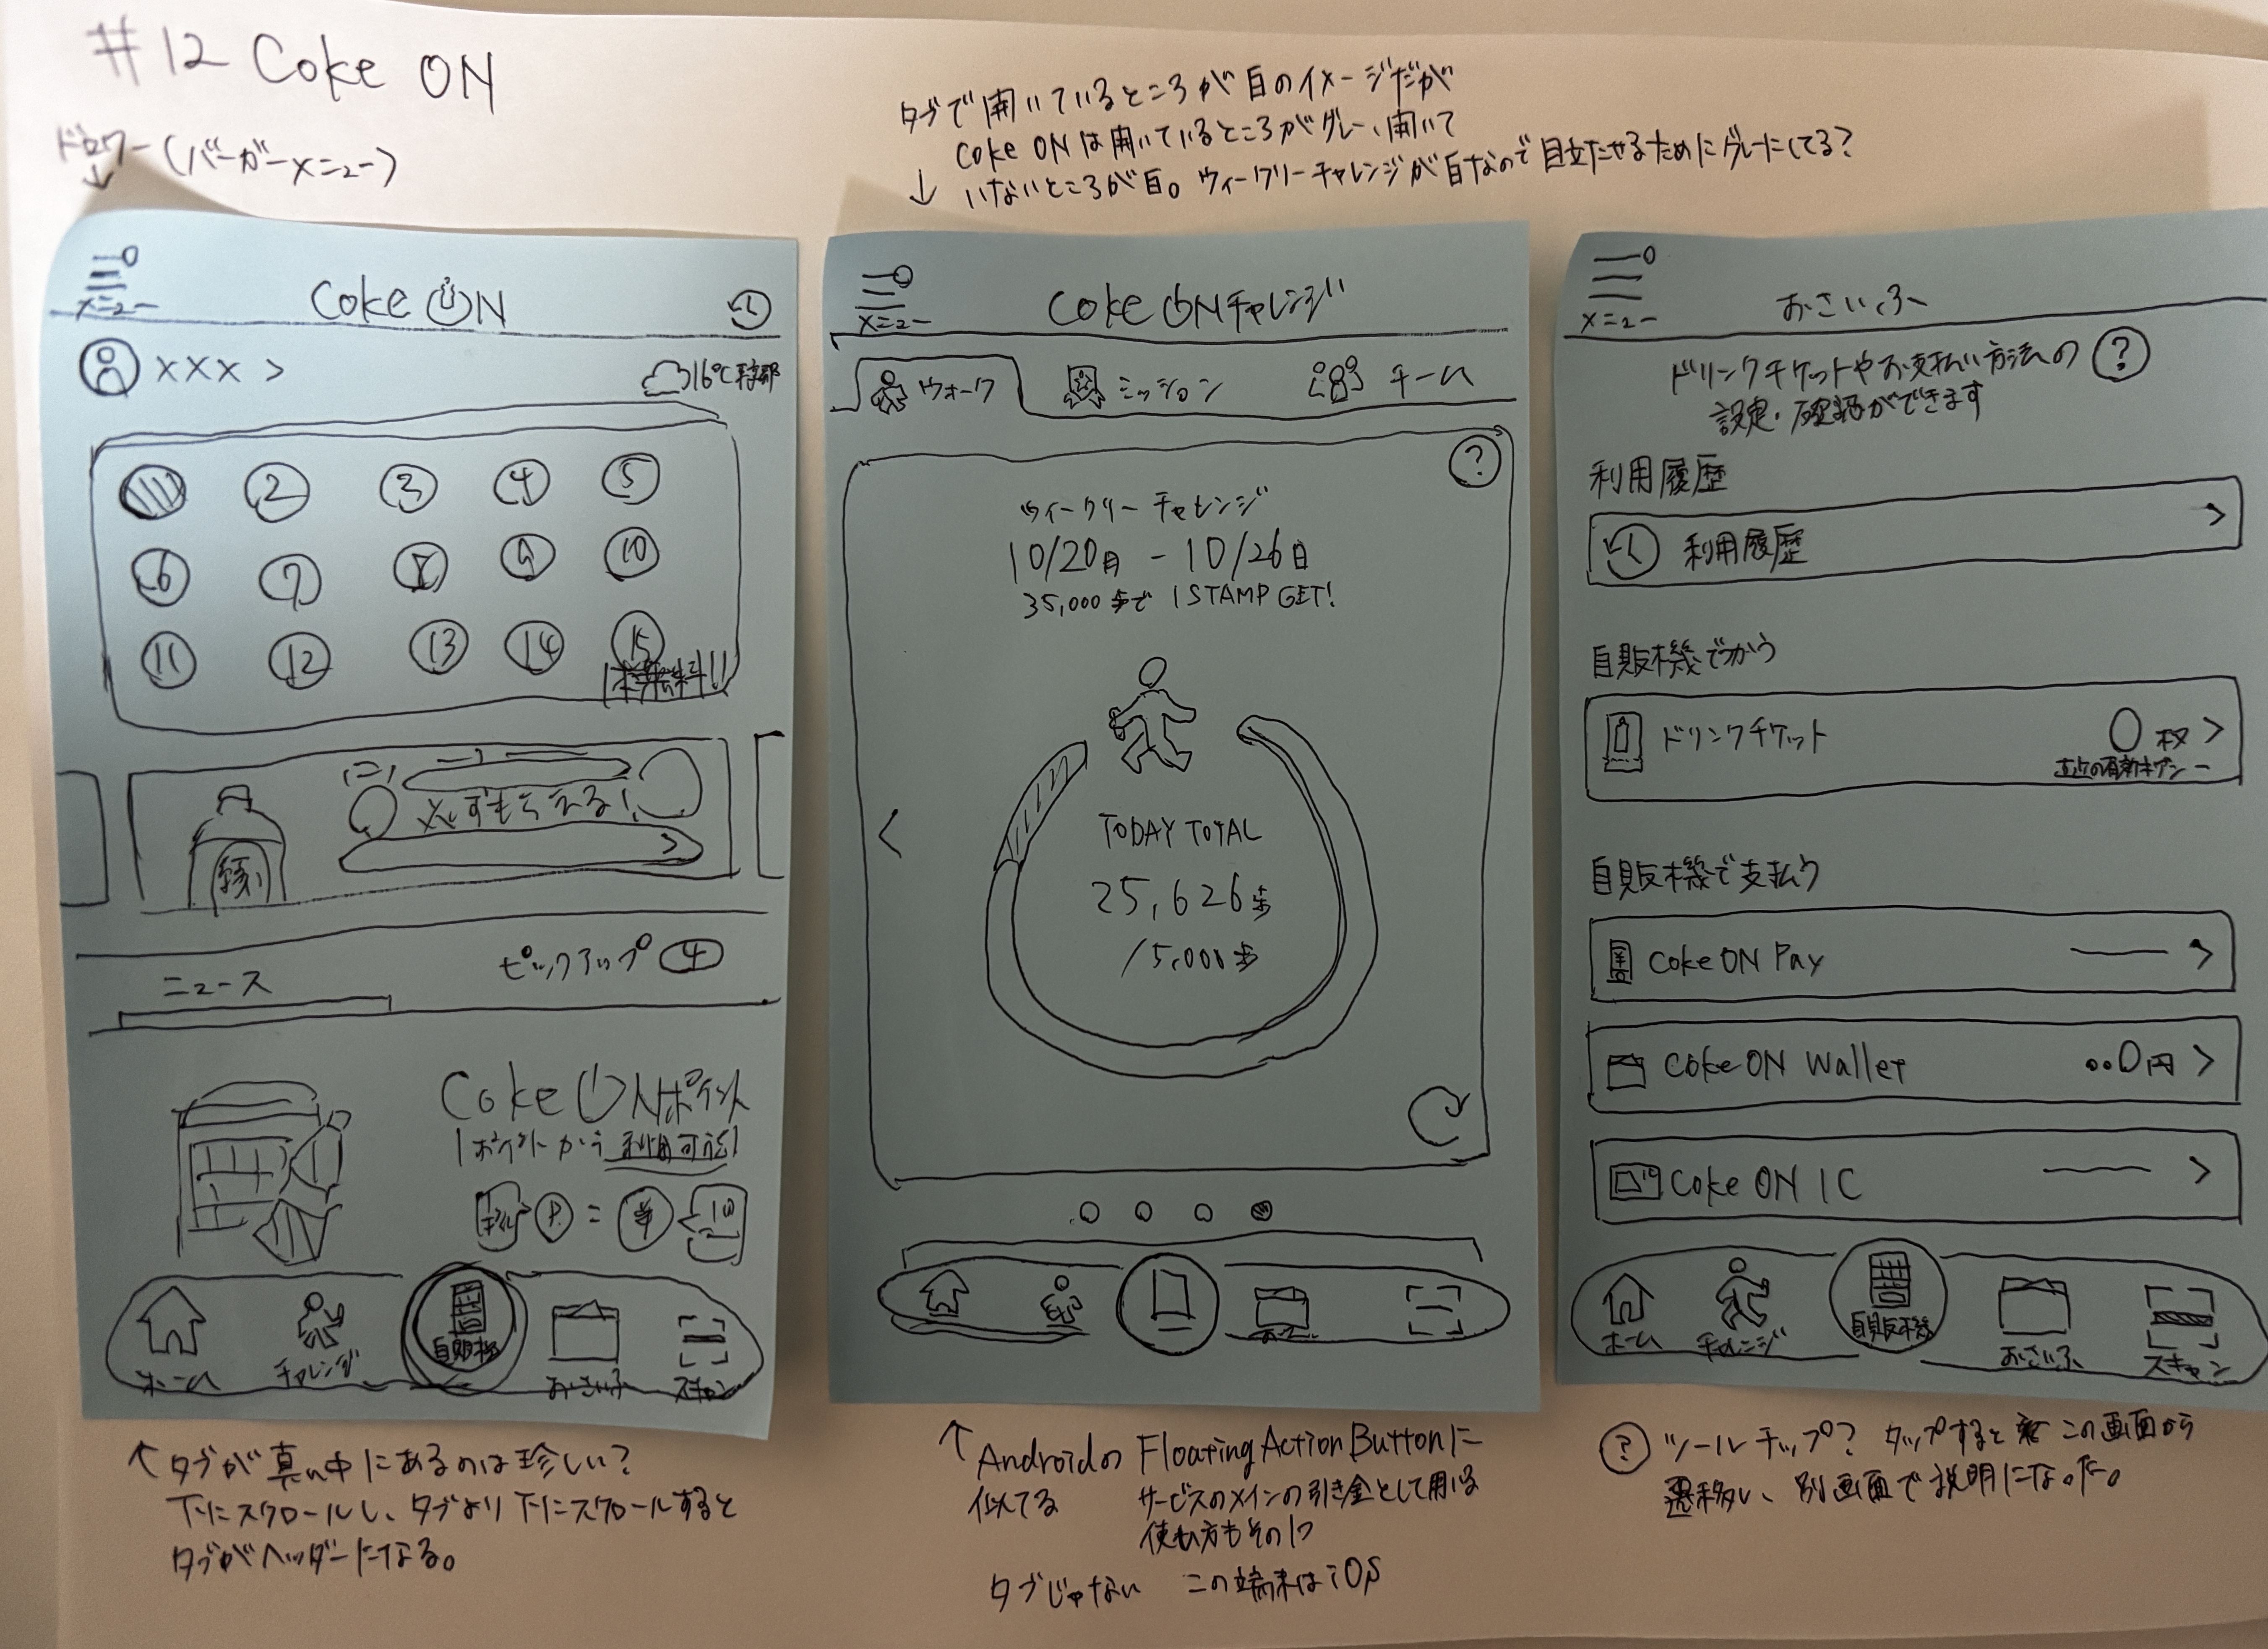 #12 Coke ON
ドロワー(バーガーメニュー)
↓
タブで開いているところが白のイメージだが
Coke ONは開いているところがグレー、開いて
↓ いないところが白。ウィークリーチャレンジが白なので目立たせるためにグレーにしてる?
メニュー
Coke ON
××× >
16℃
2 3 4 5
6 7 8 9 10
11 12 13 14 15
1本無料!!
必ずもらえる!
>
ニュース
ピックアップ 4
Coke ONポイント
1ポイントから利用可能!
P = ¥
ホーム
チャレンジ
自販機
おさいふ
スキャン
↑タブが真ん中にあるのは珍しい?
下にスクロールし、タブより下にスクロールすると
タブがヘッダーになる。
メニュー
Coke ONチャレンジ
ウォーク
ミッション
チーム
?
ウィークリーチャレンジ
10/20月 - 10/26日
35,000歩で 1 STAMP GET!
<
TODAY TOTAL
25,626歩
/5,000歩
↑ AndroidのFloating Action Buttonに
似てる サービスのメインの引き金として用いる
使い方もその1つ
タブじゃない この端末はiOS
メニュー
おさいふ
ドリンクチケットやお支払い方法の ?
設定・確認ができます
利用履歴
利用履歴 >
自販機でつかう
ドリンクチケット 0枚 >
直近の有効キゲン ー
自販機で支払う
Coke ON Pay >
Coke ON Wallet 0円 >
Coke ON IC >
ホーム
チャレンジ
自販機
おさいふ
スキャン
? ツールチップ? タップすると この画面から
遷移し、別画面で説明になった。